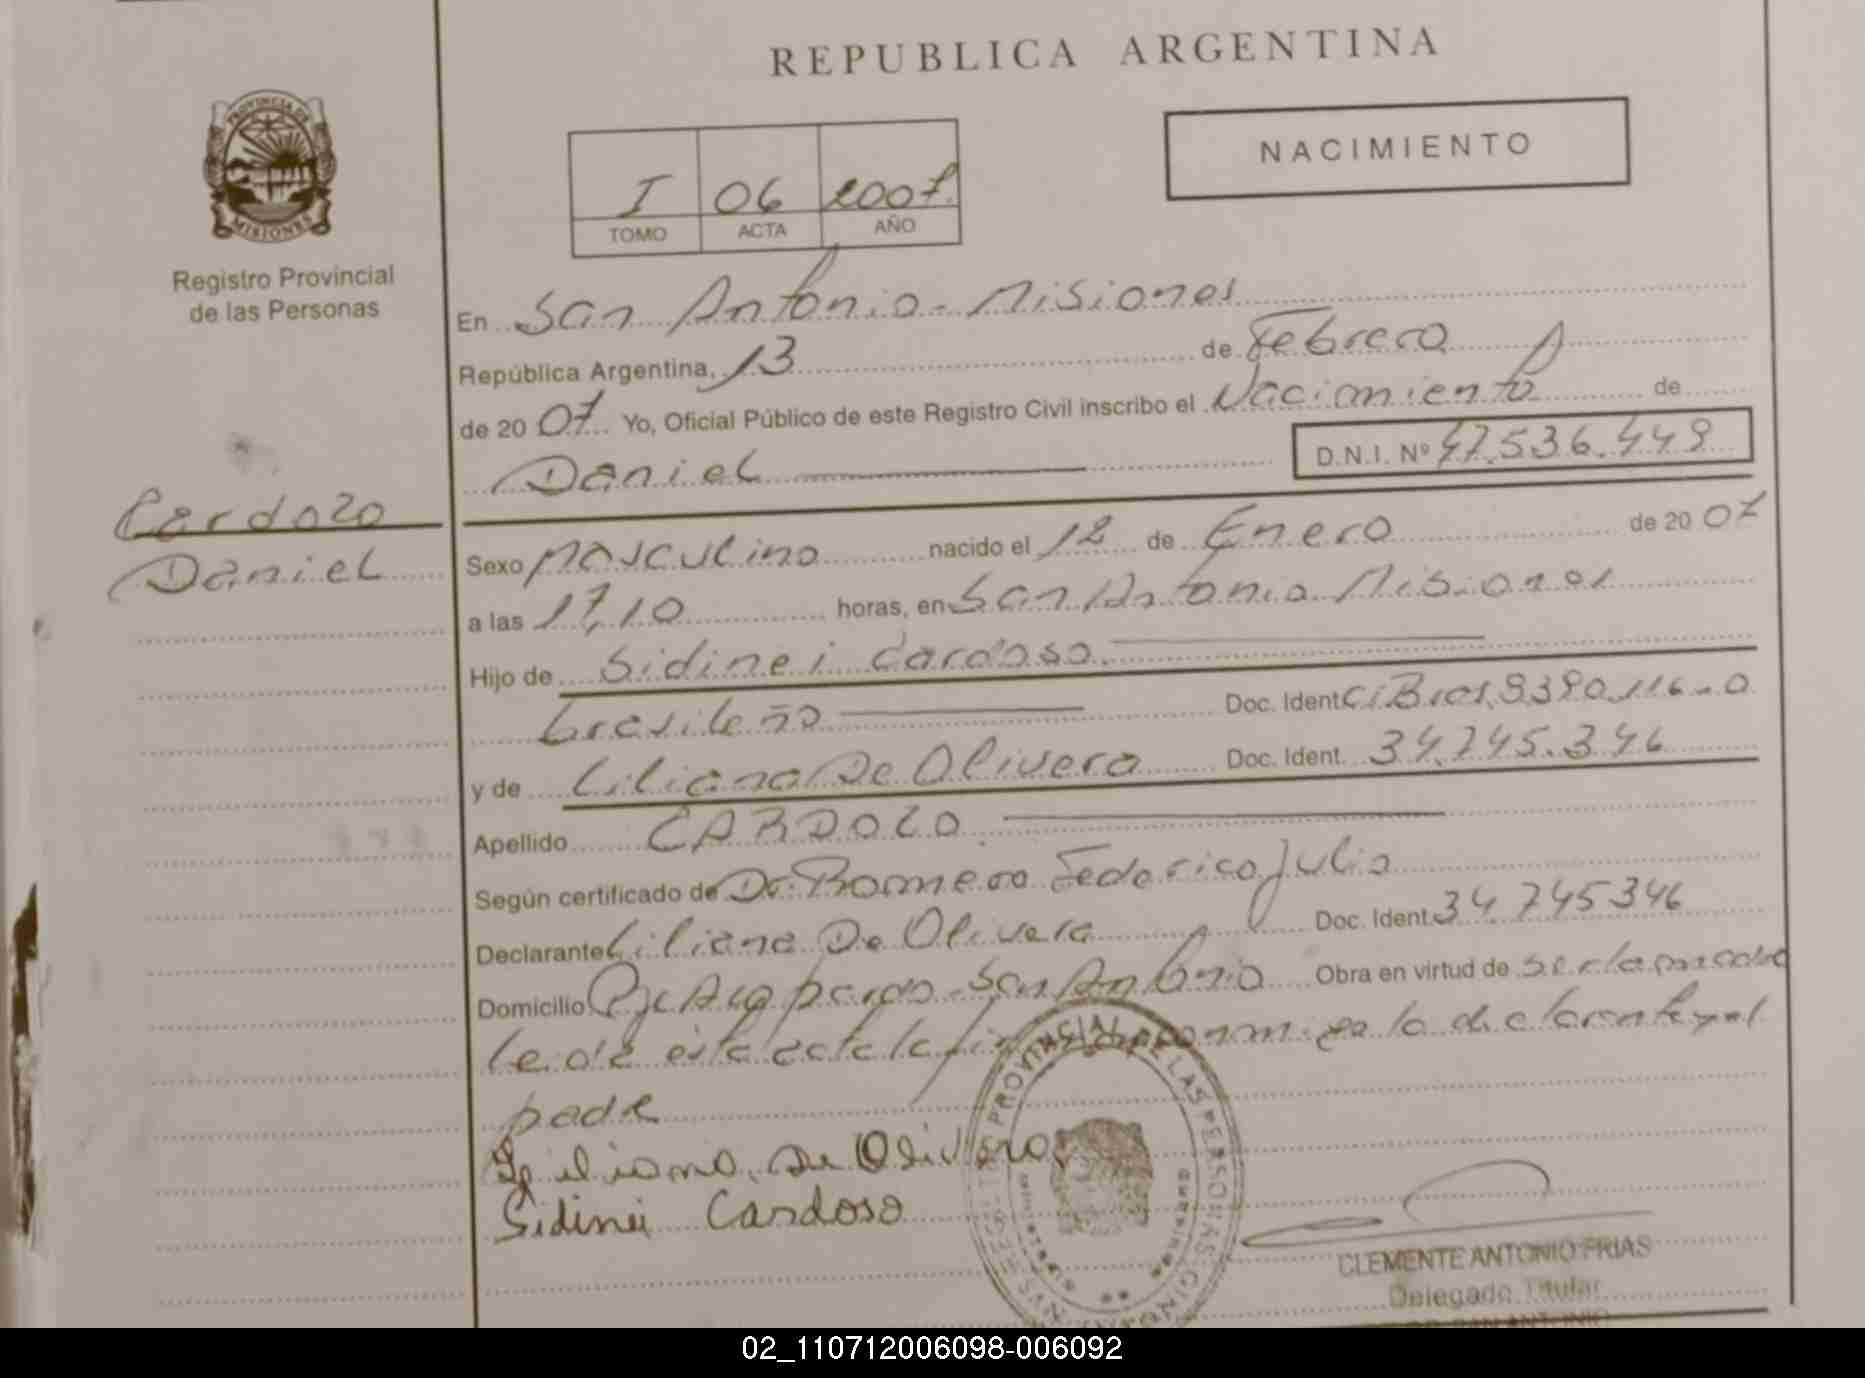 REPUBLICA ARGENTINA
PROVINCIA DE
MISIONES
Registro Provincial
de las Personas
I 06 2007.
TOMO ACTA AÑO
NACIMIENTO
En San Antonio - Misiones
República Argentina, 13 de Febrero
de 2007 Yo, Oficial Público de este Registro Civil inscribo el Nacimiento de
Daniel D.N.I. Nº 47.536.449
Cardozo
Daniel
Sexo masculino nacido el 12 de Enero de 2007
a las 17,10 horas, en San Antonio Misiones
Hijo de Sidinei Cardoso.
brasileño Doc. Ident CI Bras 9390116-0
y de Liliana De Olivera Doc. Ident. 34.745.346
Apellido CARDOZO
Según certificado de Dr. Romero Federico Julio
Declarante Liliana De Olivera Doc. Ident. 34 745346
Domicilio San Antonio Obra en virtud de ser la madre
leida esta acta la firman la declarante y el
padre
Liliana De Olivera
Sidinei Cardoso
REGISTRO PROVINCIAL DE LAS PERSONAS
CLEMENTE ANTONIO FRIAS
Delegado Titular
SAN ANTONIO
02_110712006098-006092